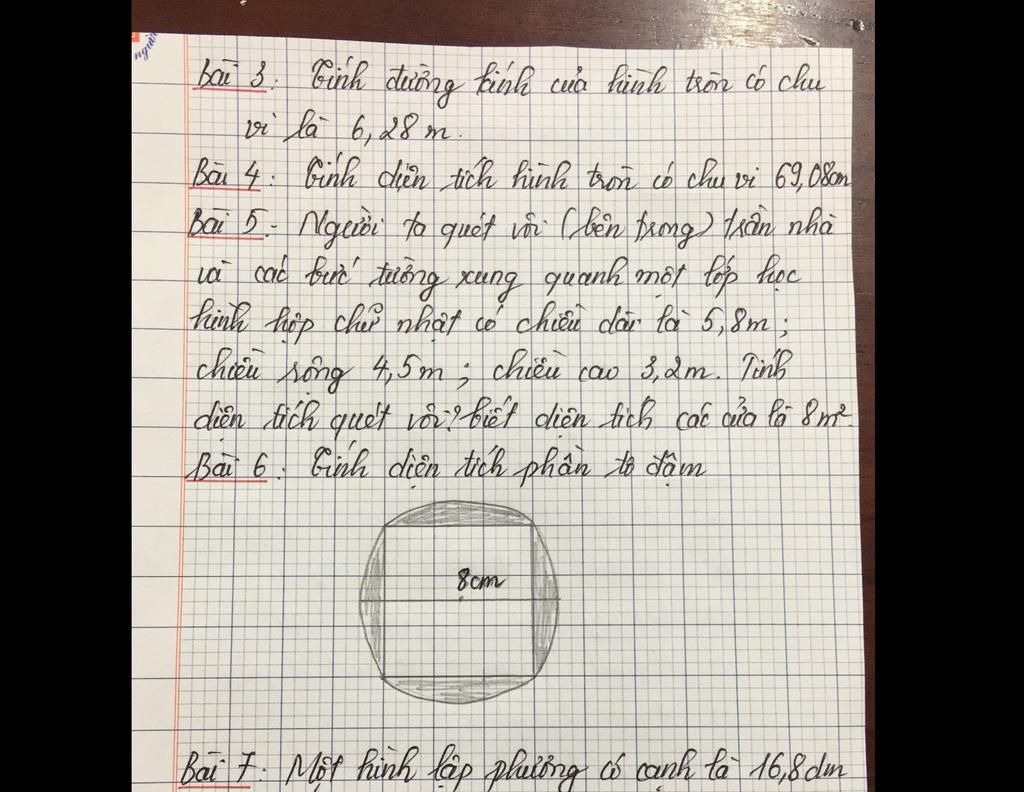 người
Bài 3: Tính đường kính của hình tròn có chu
vi là 6,28 m.
Bài 4: Tính diện tích hình tròn có chu vi 69,08cm
Bài 5: Người ta quét vôi (bên trong) trần nhà
và các bức tường xung quanh một lớp học
hình hộp chữ nhật có chiều dài là 5,8m;
chiều rộng 4,5m; chiều cao 3,2m. Tính
diện tích quét vôi? biết diện tích các cửa là 8m².
Bài 6: Tính diện tích phần tô đậm
8cm
Bài 7: Một hình lập phương có cạnh là 16,8dm